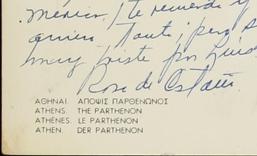 te recuerdo y
quiero tanto, pero s
muy triste por
Rosa de
ΑΘΗΝΑΙ. ΑΠΟΨΙΣ ΠΑΡΘΕΝΩΝΟΣ
ATHENS. THE PARTHENON
ATHÈNES. LE PARTHENON
ATHEN. DER PARTHENON